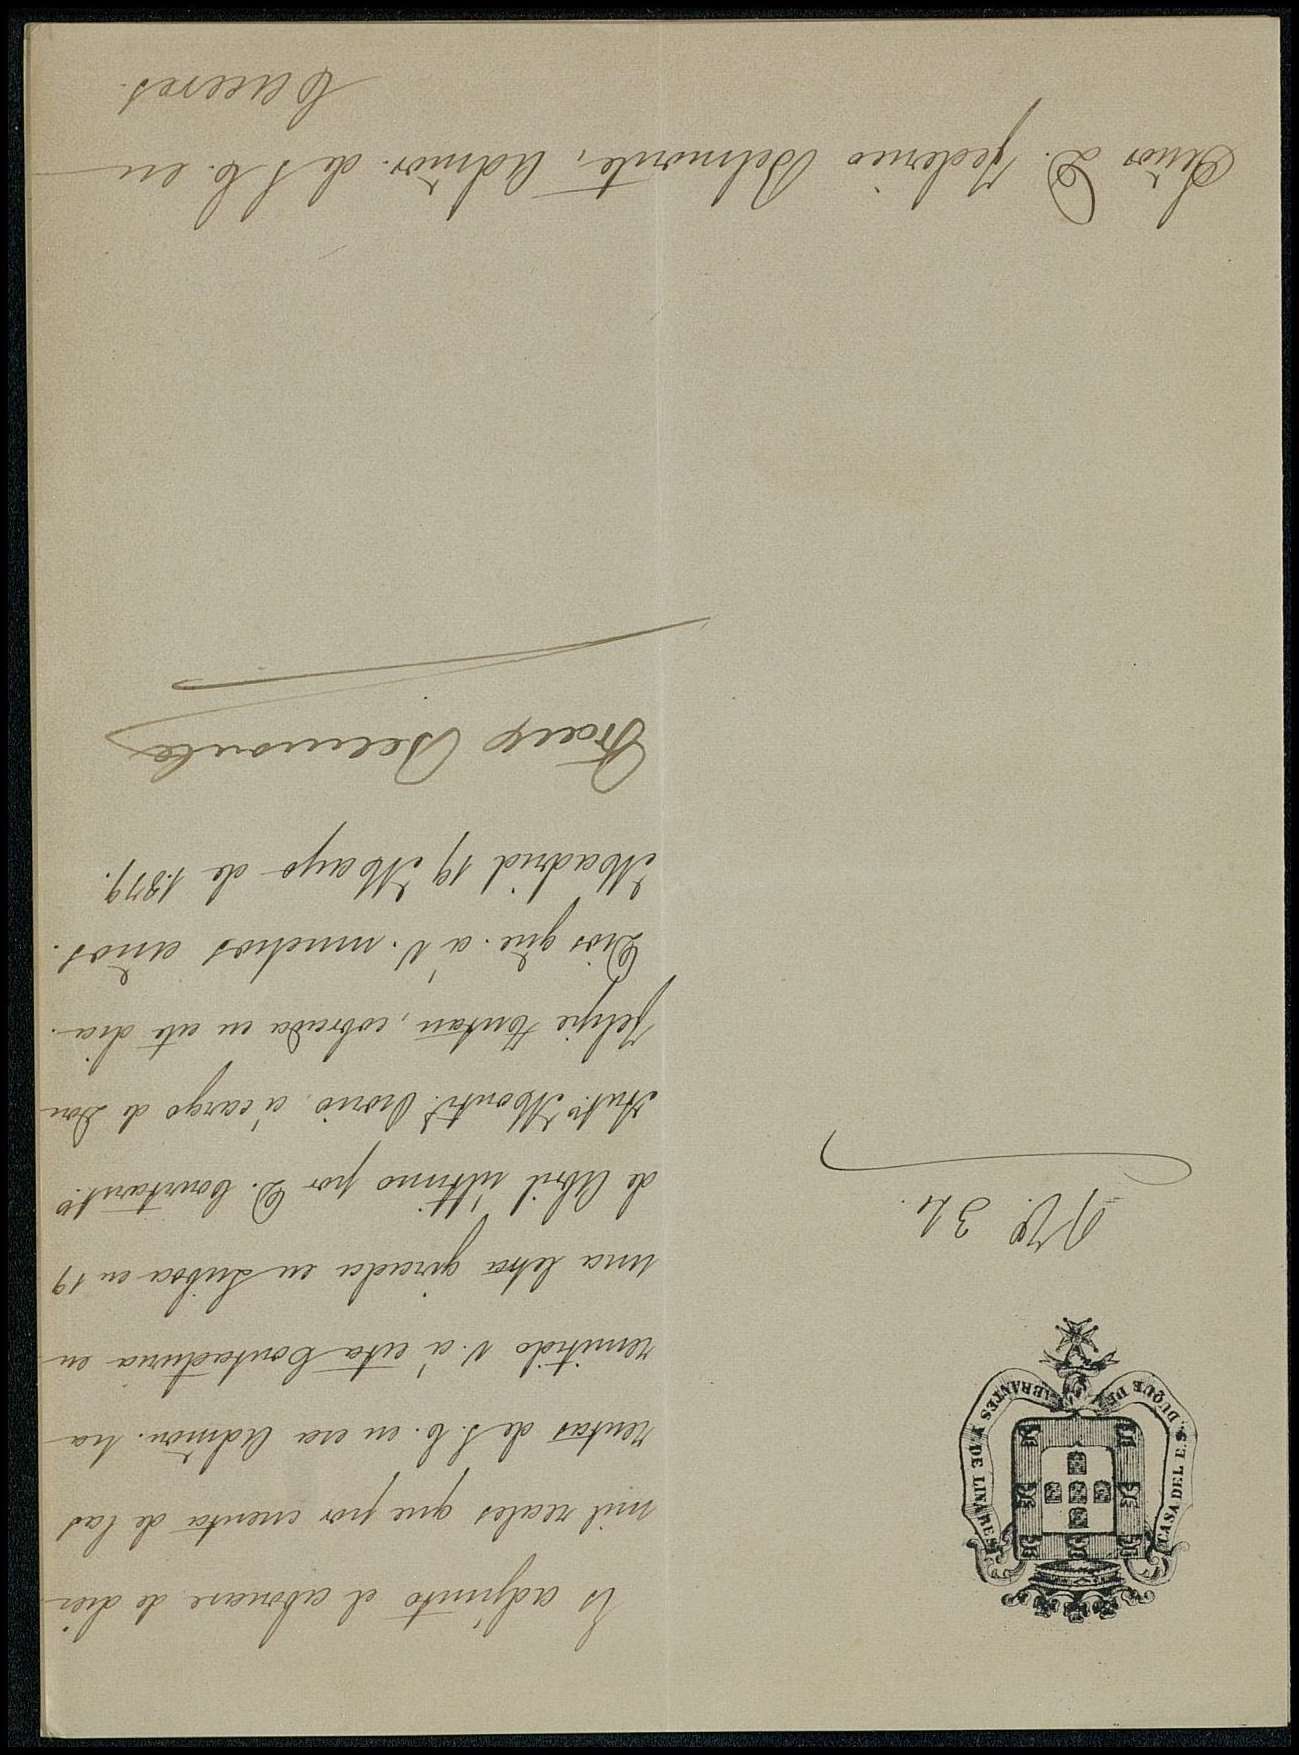 CASA DEL E.S. DUQUE DE ABRANTES Y DE LINARES
Nº. 34.
Es adjunto el abonare de diez
mil reales que por cuenta de las
rentas de S. E. en esa Admòn. ha
remitido V. á esta Contaduria en
una letra girada en Lisboa en 19
de Abril último por D. Constant.º
Ant.º Mont.º Osorio, á cargo de Don
Felipe, cobrada en este dia.
Dios gûe. á V. muchos años.
Madrid 19 Mayo de 1.879.
Franco Belmonte
Señor D. Federico Belmonte, Admòr. de S. E. en
Cáceres.